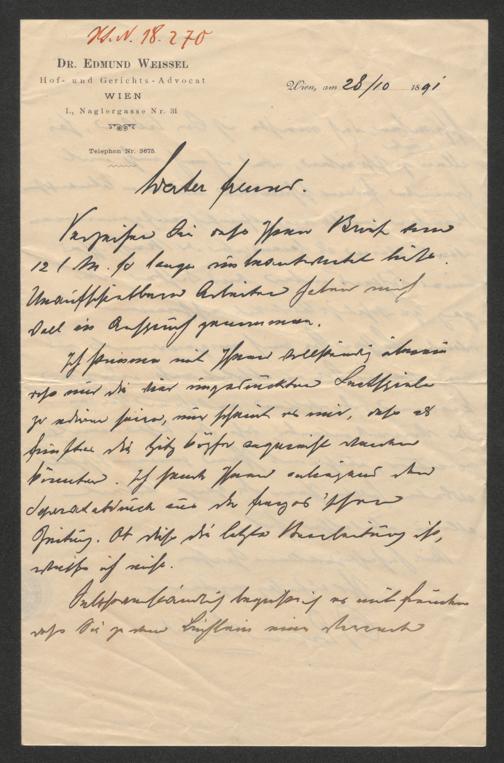 H.I.N. 18.270
DR. EDMUND WEISSEL
Hof- und Gerichts-Advocat
WIEN
I., Naglergasse Nr. 31
Telephon Nr. 3675.
Wien, am 28/10 1891
Werter Freund.
Verzeihen Sie daß Ihren Brief vom
12 l. M. so lange unbeantwortet ließ.
Unaufschiebbare Arbeiten haben mich
voll in Anspruch genommen.
Ich stimme mit Ihnen vollständig überein
daß nur die vier ungedruckten Lustspiele
zu ediren seien, nur scheint es mir, daß als
fünftes die angereiht werden
könnten. Ich sende Ihnen anliegend den
Separatabdruck aus der
Zeitung. Ob dies die letzte Bearbeitung ist,
weiß ich nicht.
Selbstverständlich begrüße ich es mit Freuden
daß Sie zu den eine